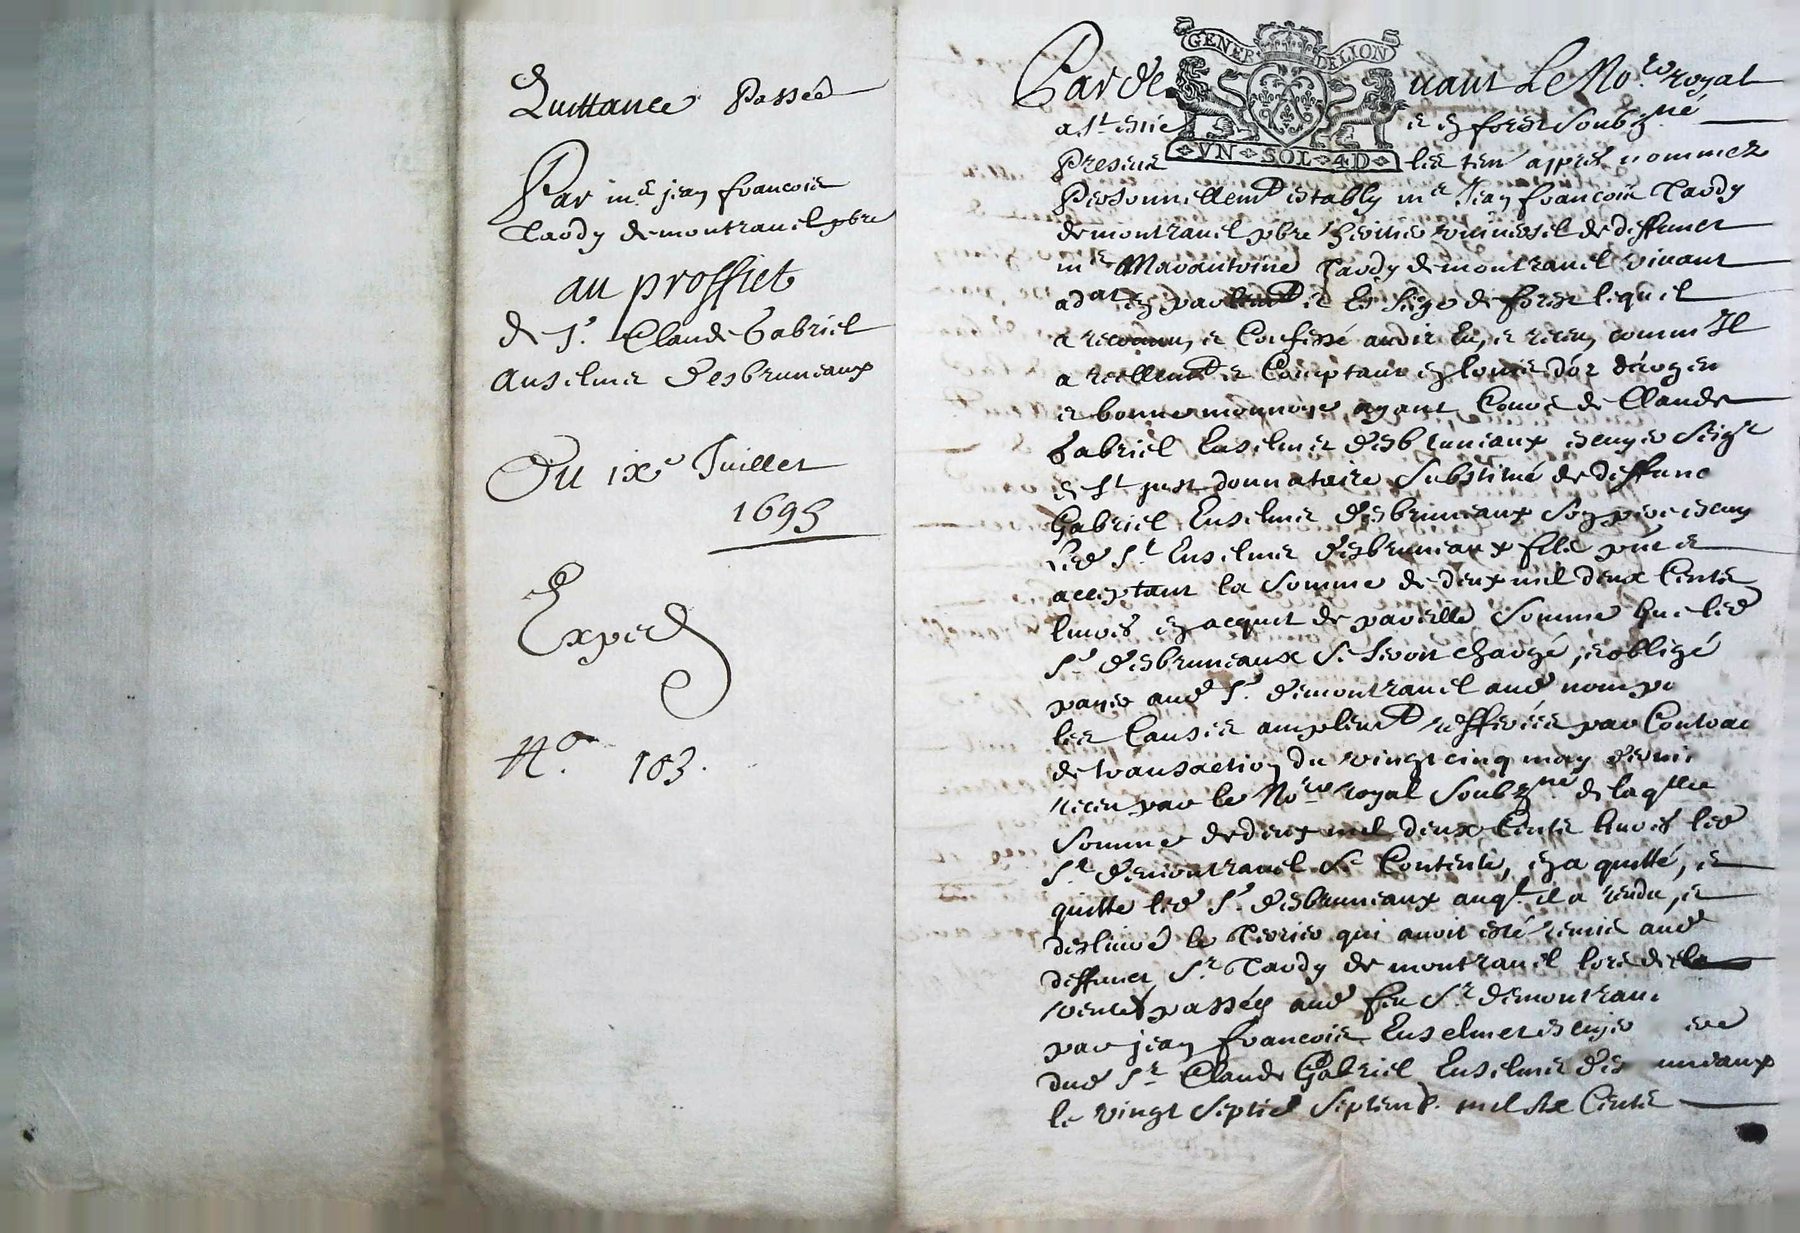 Quittance Passée
Par me jean francois
Tardy de montravel pbre
au proffict
de Sr. Claude Gabriel
Anselmet desbruneaux
Du ixe Juillet
1695
Exped
No. 103.
GENER DE LION
VN SOL 4D
Par de uant Le No.re royal
a St esti e en forest soubzné
Presens les tem appres nommez
Personnellemt estably me Jean francois Tardy
de montravel pbre heritier vniversel de deffunct
me Marcantoine Tardy de montravel vivant
adat en parlemt et es siege de forest lequel
a reconnu, et Confessé avoir eu, et receu, comme Il
a reellemt et Comptant en louis d'or d'argen
et bonne monnoye ayant Cours de Claude
Gabriel Enselmet desbruneaux escuyer Seigr
de St just donnataire substitué de deffunc
Gabriel Enselmet desbruneaux son pere escuy
led Sr Enselmet desbruneaux fils pnt et
acceptant la somme de deux mil deux Cents
livres en acquit de pareille somme que led
Sr desbruneaux se seroit chargé, et obligé
payer aud Sr. demontravel aud nom po
les Causes amplemt refferées par Contrac
de transaction du vingt cinq may derni
receu par le No.re royal soubzné de laqlle
somme de deux mil deux Cents livres led
Sr demontravel se Contente, en a quitté, et
quitte led Sr. desbruneaux auqt. il a rendu, et
deslivré le Terrier qui avoit esté remis aud
deffunct Sr Tardy de montravel lors de la
vente passée aud feu Sr demontrav
par jean francois Enselmet escuyer ere
dud Sr Claude Gabriel Enselmet des uneaux
le vingt septie septemb. mil six Cents